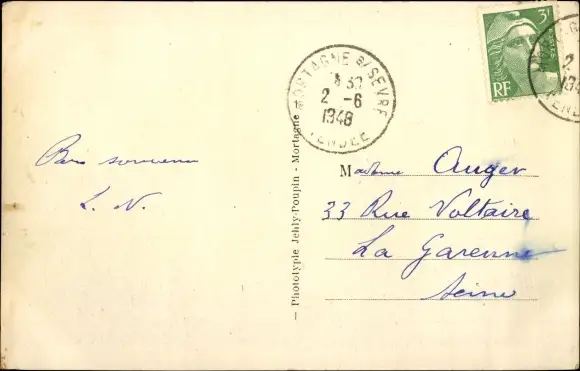 Bon souvenir
L. N.
— Phototypie Jehly-Poupin - Mortagne —
MORTAGNE S/SEVRE
30
2 -6
1948
VENDEE
3F
RF
2
194
Madame Auger
33 Rue Voltaire
La Garenne
Seine